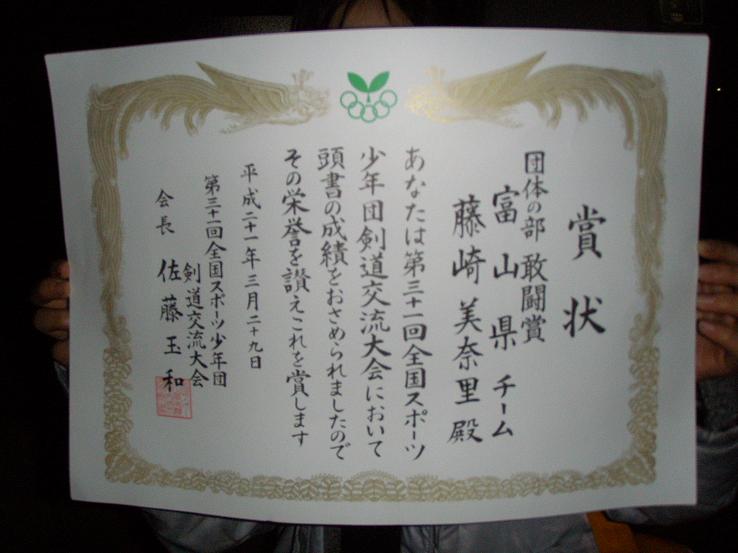 賞状
団体の部 敢闘賞
富山県チーム
藤崎美奈里殿
あなたは第三十一回全国スポーツ
少年団剣道交流大会において
頭書の成績をおさめられましたので
その栄誉を讃えこれを賞します
平成二十一年三月二十九日
第三十一回全国スポーツ少年団
剣道交流大会
会長 佐藤玉和